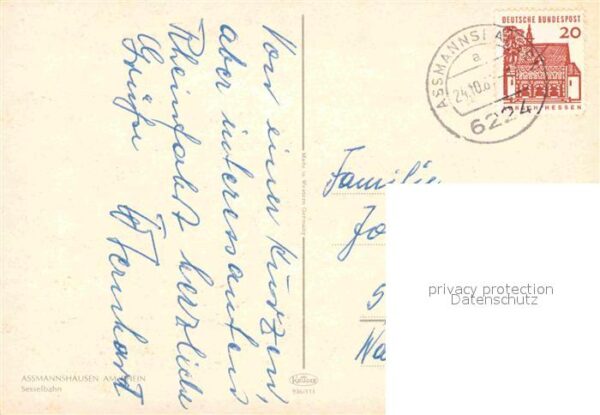 Von einer kurzen
aber interessanten
Rheinfahrt herzliche
Grüße
ASSMANNSHAUSEN AM RHEIN
Sesselbahn
Made in Western Germany
Krüger
936/111
DEUTSCHE BUNDESPOST
20
LORSCH HESSEN
ASSMANNSHAUSEN
a
24.10.6
6224
Familie
Jo
S
Wa
privacy protection
Datenschutz